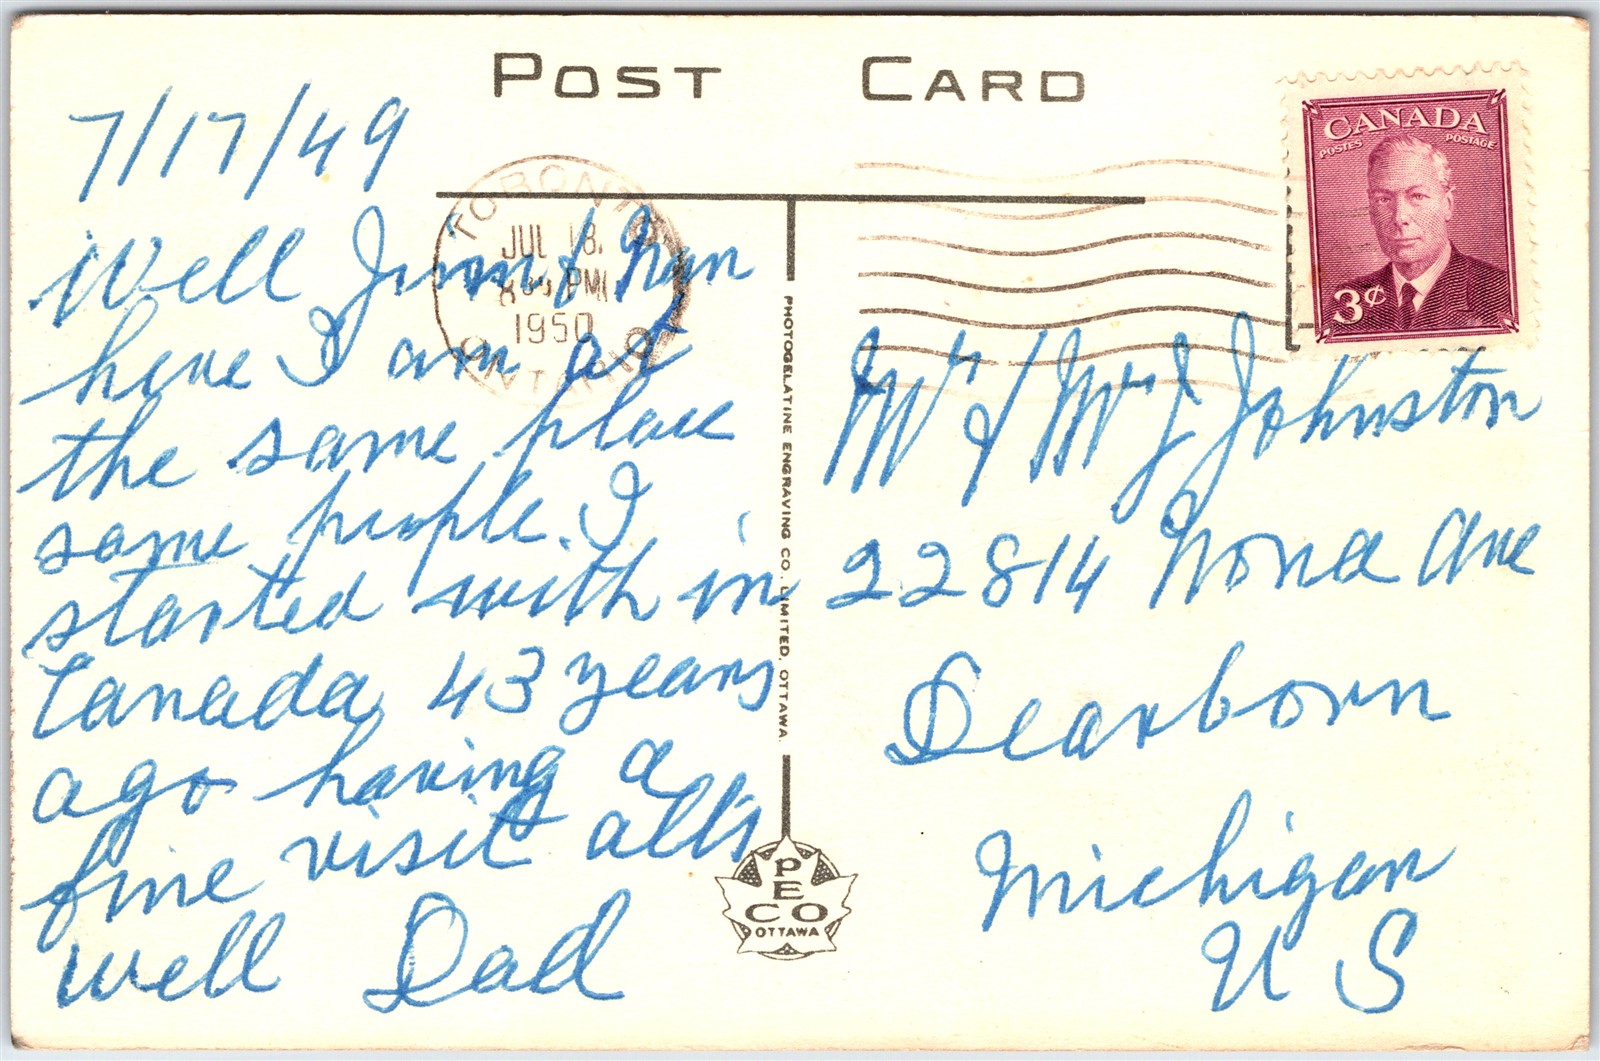 POST CARD
7/17/49
Well Jim & Nan
here I am at
the same place
same people. I
started with in
Canada, 43 years
ago having a
fine visit all's
well Dad
TORONTO
JUL 18
PM
1950
ONTARIO
PHOTOGELATINE ENGRAVING CO. LIMITED. OTTAWA.
PECO
OTTAWA
CANADA
POSTES POSTAGE
3¢
Mr & Mrs J Johnston
22814 Nona Ave
Dearborn
Michigan
U S